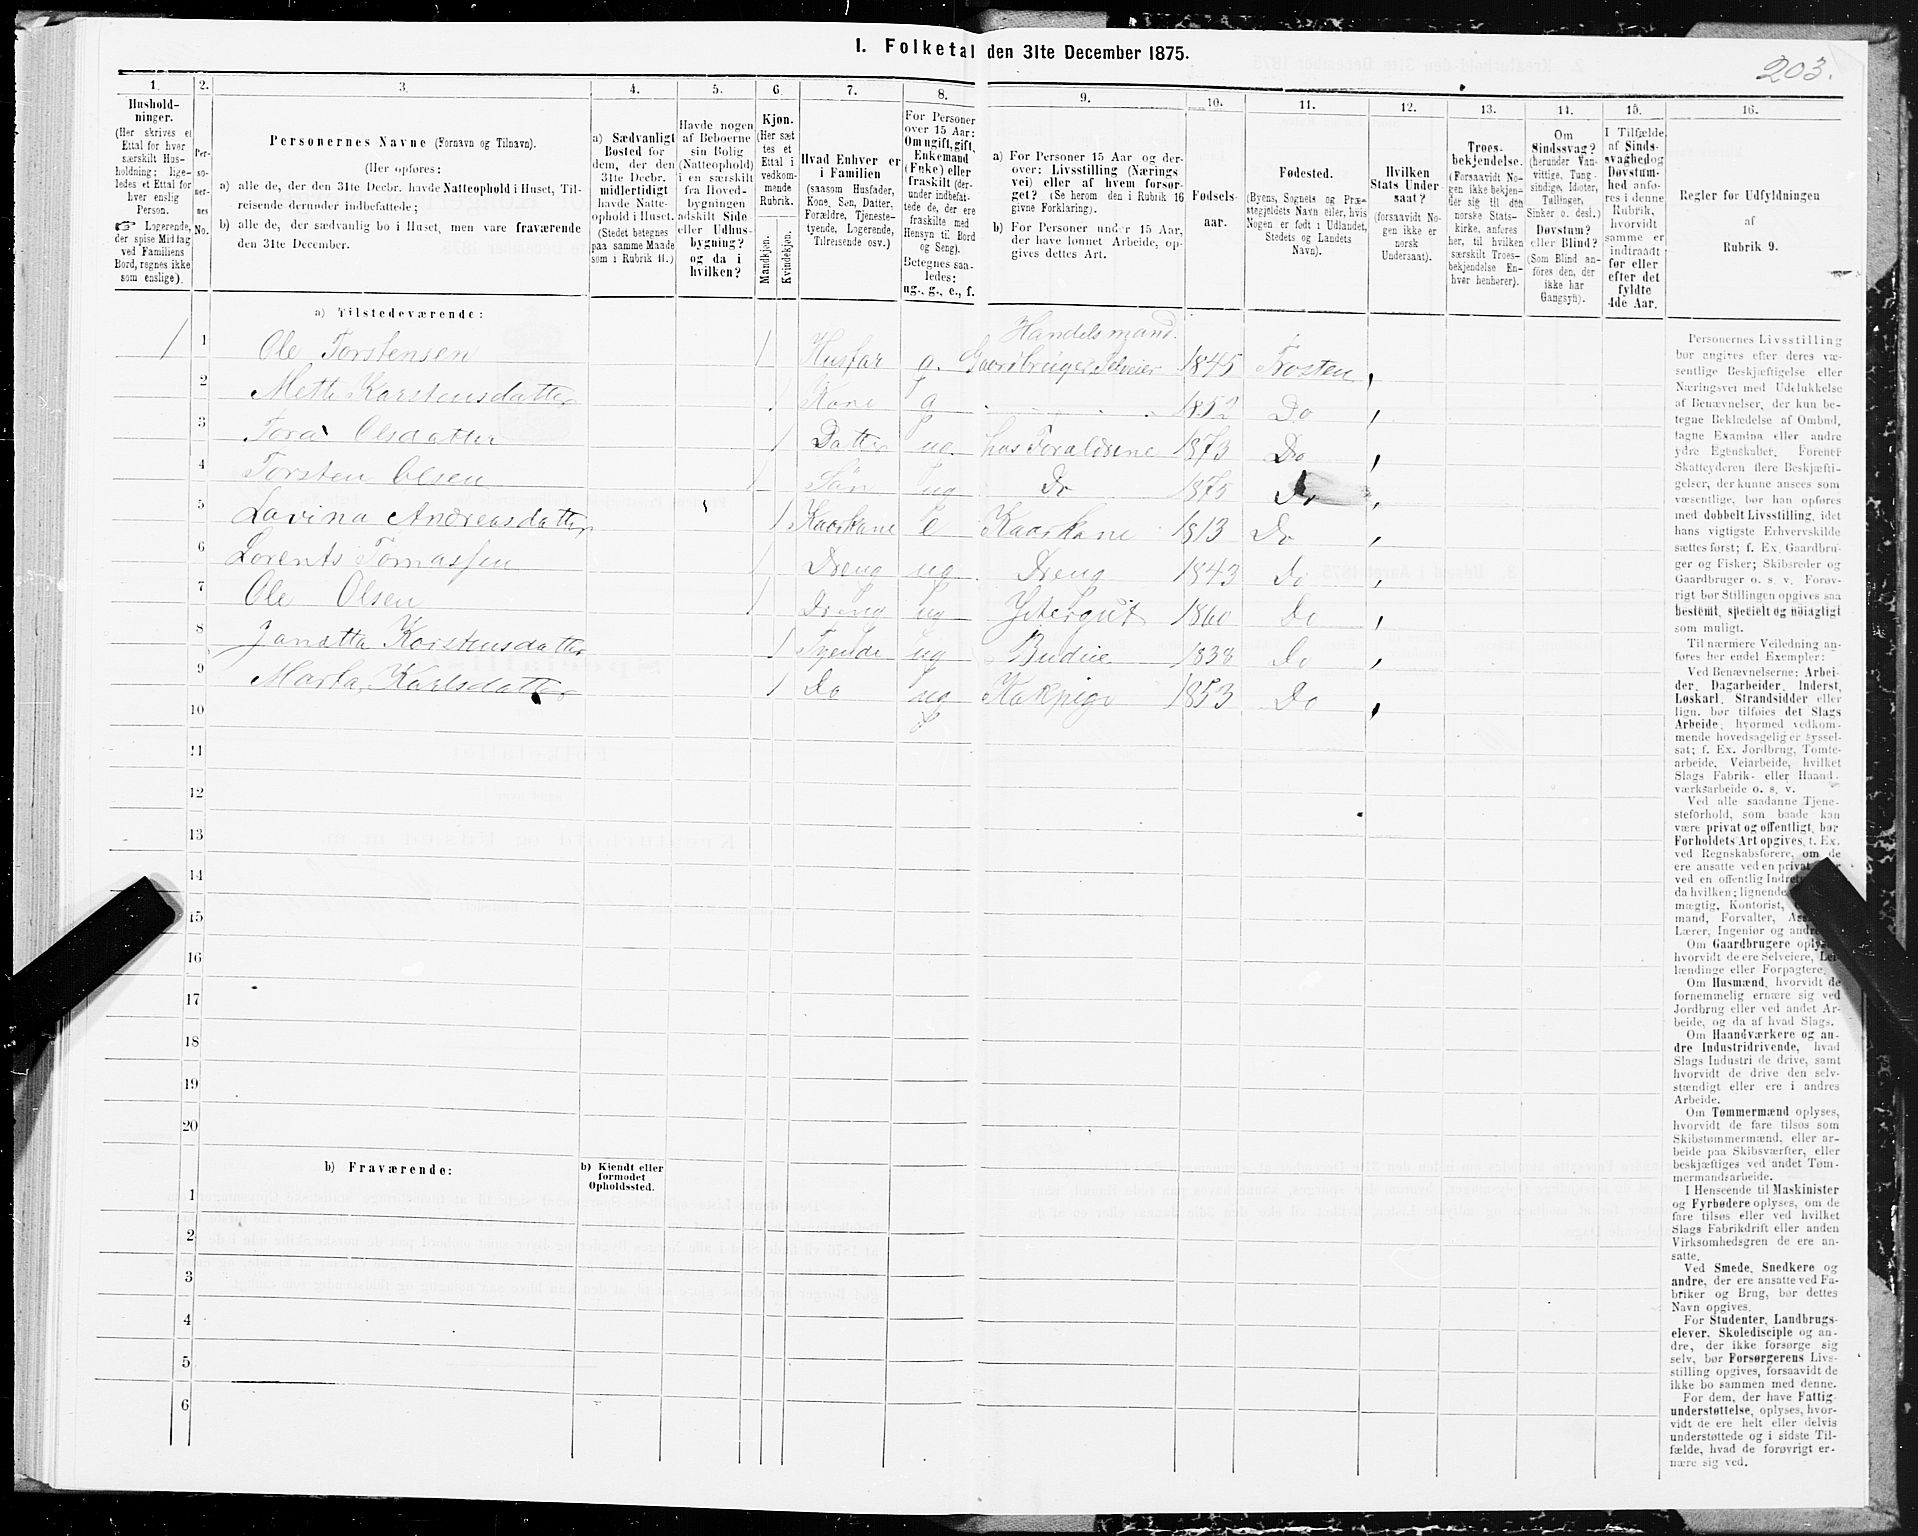 I. Folketal den 31te December 1875.
203.
1.
2.
3.
4.
5.
6.
7.
8.
9.
10.
11.
12.
13.
14.
15.
16.
Hushold-
ninger.
(Her skrives et
Ettal for hver
særskilt Hus-
holdning; lige-
ledes et Ettal for
hver enslig
Person.
☞ Logerende,
der spise Middag
ved Familiens
Bord, regnes ikke
som enslige).
Per-
so-
ner-
nes
No.
Personernes Navne (Fornavn og Tilnavn).
(Her opføres:
a) alle de, der den 31te Decbr. havde Natteophold i Huset, Til-
reisende derunder indbefattede;
b) alle de, der sædvanlig bo i Huset, men vare fraværende
den 31te December.
a) Sædvanligt
Bosted for
dem, der den
31te Decbr.
midlertidigt
havde Natte-
ophold i Huset.
(Stedet betegnes
paa samme Maade
som i Rubrik 11.)
Havde nogen
af Beboerne
sin Bolig
(Natteophold)
i en særskilt
fra Hoved-
bygningen
adskilt Side-
eller Udhus-
bygning?
og da i
hvilken?
Kjøn.
(Her sæt-
tes et
Ettal i
vedkom-
mende
Rubrik.
Mandkjøn.
Kvindekjøn.
Hvad Enhver er
i Familien
(saasom Husfader,
Kone, Søn, Datter,
Forældre, Tjeneste-
tyende, Logerende,
Tilreisende osv.)
For Personer
over 15 Aar:
Om ugift, gift,
Enkemand
(Enke) eller
fraskilt (der-
under indbefat-
tede de, der ere
fraskilte med
Hensyn til Bord
og Seng).
Betegnes saa-
ledes:
ug., g., e., f.
a) For Personer 15 Aar og der-
over: Livsstilling (Nærings
vei) eller af hvem forsør-
get? (Se herom den i Rubrik 16
givne Forklaring).
b) For Personer under 15 Aar,
der have lønnet Arbeide, op-
gives dettes Art.
Fødsels-
aar.
Fødested.
(Byens, Sognets og Præ-
stegjeldets Navn eller, hvis
Nogen er født i Udlandet,
Stedets og Landets
Navn).
Hvilken
Stats Under-
saat?
(forsaavidt No-
gen ikke er
norsk
Undersaat).
Troes-
bekjendelse.
(Forsaavidt No-
gen ikke bekjen-
der sig til den
norske Stats-
kirke, anføres
her, til hvilken
særskilt Troes-
bekjendelse En-
hver henhører).
Om
Sindssvag?
(herunder Van-
vittige, Tung-
sindige, Idioter,
Tullinger,
Sinker o. desl.)
Døvstum?
eller Blind?
(Som Blind an-
føres den, der
ikke har
Gangsyn).
I Tilfælde
af Sinds-
svaghed og
Døvstum-
hed anfø-
res i denne
Rubrik,
hvorvidt
samme er
indtraadt
før eller
efter det
fyldte
4de Aar.
Regler for Udfyldningen
af
Rubrik 9.
a) Tilstedeværende:
Handelsmand.
1 1 Ole Torstensen 1 Husfar g. Gaardbruger Selveier 1845 Frosten
2 Mette Karstensdatter 1 Kone g 1852 Do
3 Tora Olsdatter 1 Datter ug hos Foraldrene 1873 Do
4 Torsten Olsen 1 Sön ug Do 1875 Do
5 Lovina Andreasdatter 1 Kaarkane e Kaarkane 1813 Do
6 Lorents Tomassen 1 Dreng ug Dreng 1843 Do
7 Ole Olsen 1 Dreng ug 1860 Do
8 Karstensdatter 1 Tyende ug Budeie 1838 Do
9 Marta Karlsdatter 1 Do ug Kokpige 1853 Do
10
11
12
13
14
15
16
17
18
19
20
b) Fraværende:
b) Kjendt eller
formodet
Opholdssted.
1
2
3
4
5
6
Personernes Livsstilling
bør angives efter deres væ-
sentlige Beskjæftigelse eller
Næringsvei med Udelukkelse
af Benævnelser, der kun be-
tegne Beklædelse af Ombud,
tagne Examina eller andre
ydre Egenskaber. Forener
Skatteyderen flere Beskjæfti-
gelser, der kunne ansees som
væsentlige, bør han opføres
med dobbelt Livsstilling, idet
hans vigtigste Erhvervskilde
sættes først; f. Ex. Gaardbru-
ger og Fisker; Skibsreder og
Gaardbruger o. s. v. Forøv-
rigt bør Stillingen opgives saa
bestemt, specielt og nøiagtigt
som muligt.
Til nærmere Veiledning an-
føres her endel Exempler:
Ved Benævnelserne: Arbei-
der, Dagarbeider, Inderst,
Løskarl, Strandsidder eller
lign. bør tilføies det Slags
Arbeide, hvormed vedkom-
mende hovedsagelig er syssel-
sat; f. Ex. Jordbrug, Tomte-
arbeide, Veiarbeide, hvilket
Slags Fabrik- eller Haand-
værksarbeide o. s. v.
Ved alle saadanne Tjene-
steforhold, som baade kan
være privat og offentligt, bør
Forholdets Art opgives, t. Ex.
ved Regnskabsførere, om de
ere ansatte ved en privat eller
ved en offentlig
da hvilken; lignende
mægtig, Kontorist,
mand, Forvalter,
Lærer, Ingeniør og andre.
Om Gaardbrugere oplyses,
hvorvidt de ere Selveiere, Lei-
lændinge eller Forpagtere.
Om Husmænd, hvorvidt de
fornemmelig ernære sig ved
Jordbrug eller ved andet Ar-
beide, og da af hvad Slags.
Om Haandværkere og an-
dre Industridrivende, hvad
Slags Industri de drive, samt
hvorvidt de drive den selv-
stændigt eller ere i andres
Arbeide.
Om Tømmermænd oplyses,
hvorvidt de fare tilsøs som
Skibstømmermænd, eller ar-
beide paa Skibsværfter, eller
beskjæftiges ved andet Tøm-
mermandsarbeide.
I Henseende til Maskinister
og Fyrbødere oplyses, om de
fare tilsøs eller ved hvilket
Slags Fabrikdrift eller anden
Virksomhedsgren de ere an-
satte.
Ved Smede, Snedkere og
andre, der ere ansatte ved Fa-
briker og Brug, bør dettes
Navn opgives.
For Studenter, Landbrugs-
elever, Skoledisciple og an-
dre, der ikke forsørge sig
selv, bør Forsørgerens Livs-
stilling opgives, forsaavidt de
ikke bo sammen med denne.
For dem, der have Fattig-
understøttelse, oplyses, hvor-
vidt de ere helt eller delvis
understøttede og i sidste Til-
fælde, hvad de forøvrigt er-
nære sig ved.